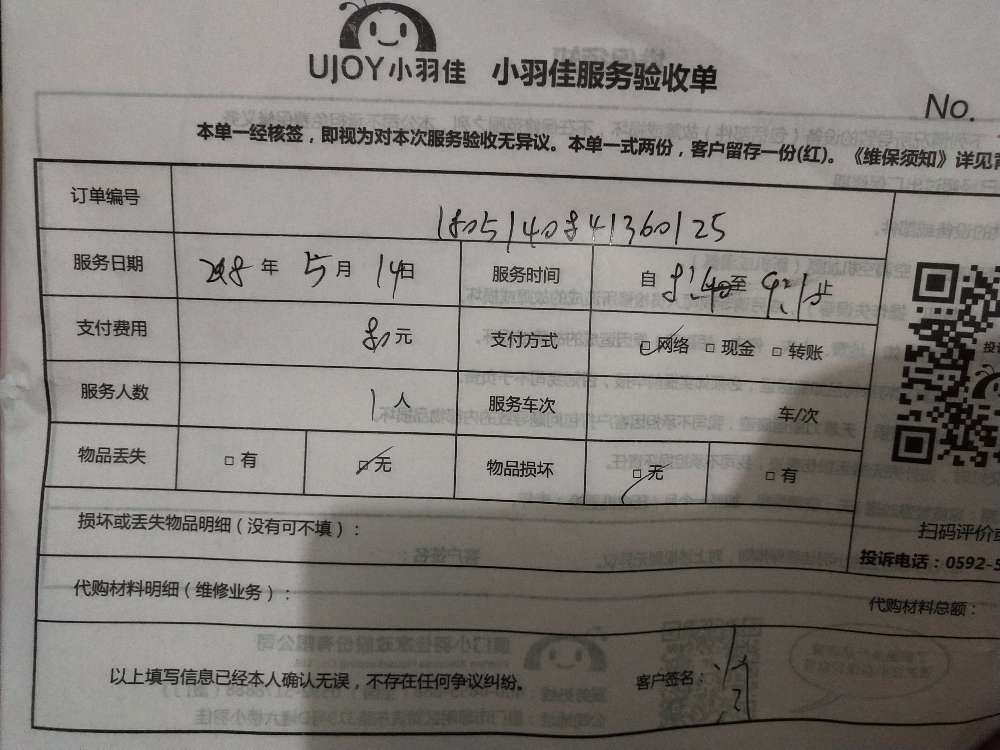 UJOY小羽佳 小羽佳服务验收单
No.
本单一经核签，即视为对本次服务验收无异议。本单一式两份，客户留存一份(红)。《维保须知》详见
订单编号 1805140841360125
服务日期 2018年 5月 14日 服务时间 自 8:40至 9:21止
支付费用 80元 支付方式 □网络 □现金 □转账
服务人数 1人 服务车次 车/次
物品丢失 □有 □无 物品损坏 □无 □有
损坏或丢失物品明细（没有可不填）：
扫码评价
投诉电话：0592-5
代购材料明细（维修业务）：
代购材料总额：
以上填写信息已经本人确认无误，不存在任何争议纠纷。 客户签名：